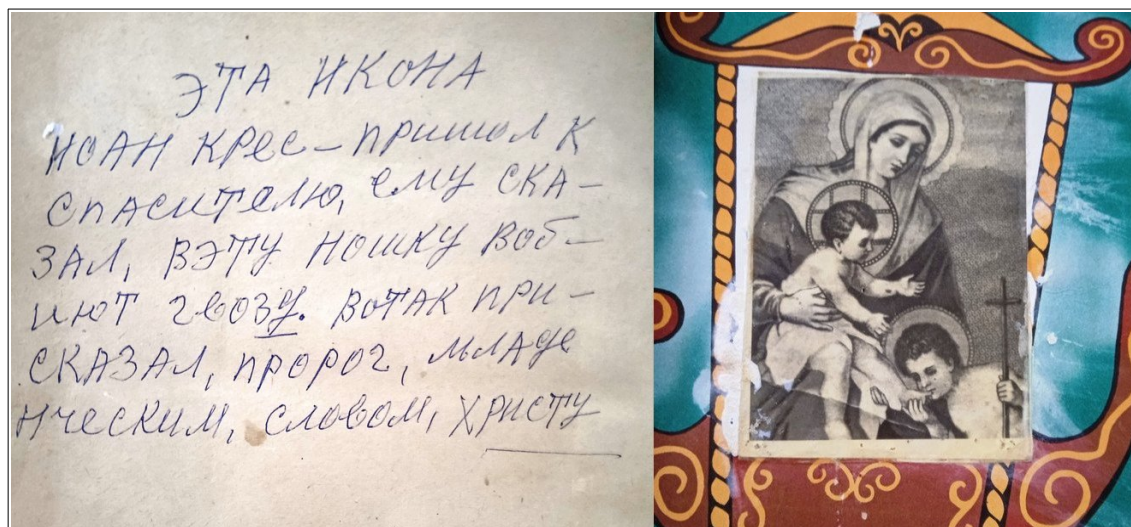 ЭТА ИКОНА
ИОАН КРЕС- ПРИШОЛ К
СПАСИТЕЛЮ, ЕМУ СКА-
ЗАЛ, ВЭТУ НОШКУ ВОБ-
ИЮТ ГВОЗУ. ВОТАК ПРИ-
СКАЗАЛ, ПРОРОГ, МЛАДЕ
НЧЕСКИМ, СЛОВОМ, ХРИСТУ